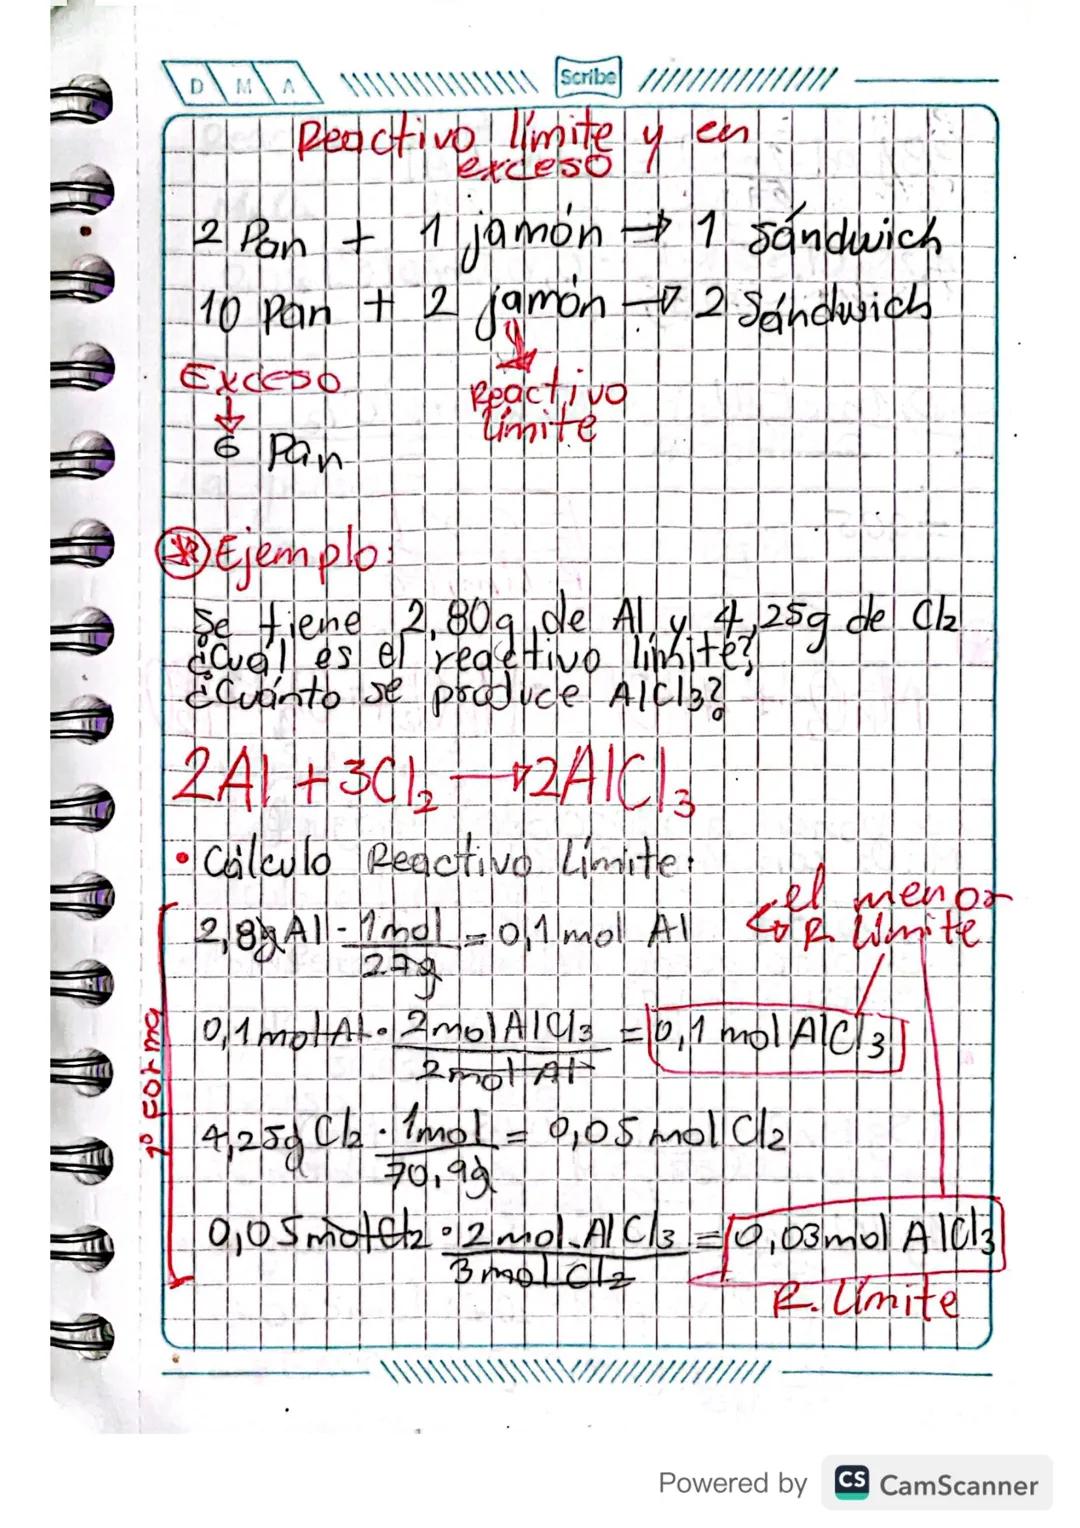 D M A
Scribe
Reactivo límite y en
exceso
2 Pan + 1 jamón → 1 sándwich
10 Pan + 2 jamón → 2 Sándwich
Exceso
↓
6 Pan
Reactivo
límite
Ejemplo:
Se tiene 2,80g de Al y 4,25g de Cl2
¿Cuál es el reactivo límite?
¿Cuánto se produce AlCl3?
2Al + 3Cl2 → 2AlCl3
• Cálculo Reactivo Límite:
el menor
↪ R. límite
1° forma
2,8g Al · 1mol/27g = 0,1 mol Al
0,1 mol Al · 2 mol AlCl3/2 mol Al = 0,1 mol AlCl3
4,25g Cl2 · 1mol/70,9g = 0,05 mol Cl2
0,05 mol Cl2 · 2 mol AlCl3/3 mol Cl2 = 0,03 mol AlCl3
R. límite
Powered by CS CamScanner